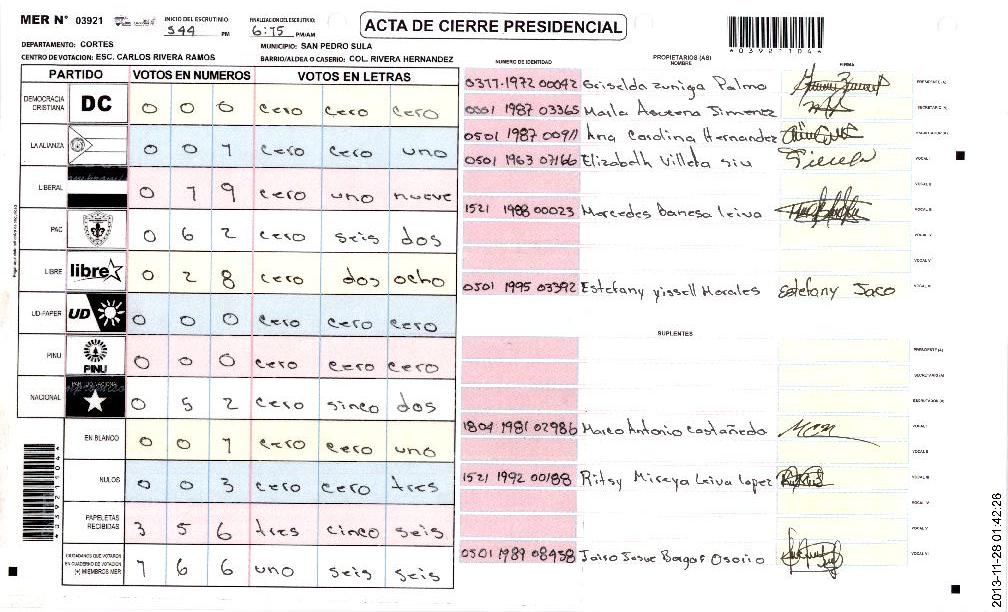 MER N° 03921
INICIO DEL ESCRUTINIO: 544 PM
FINALIZACION DEL ESCRUTINIO: 6:15 PM/AM
ACTA DE CIERRE PRESIDENCIAL
DEPARTAMENTO: CORTES
MUNICIPIO: SAN PEDRO SULA
CENTRO DE VOTACION: ESC. CARLOS RIVERA RAMOS
BARRIO/ALDEA O CASERIO: COL. RIVERA HERNANDEZ
PARTIDO VOTOS EN NUMEROS VOTOS EN LETRAS
DEMOCRACIA CRISTIANA DC 0 0 0 cero cero cero
LA ALIANZA 0 0 1 cero cero uno
LIBERAL 0 1 9 cero uno nueve
PAC 0 6 2 cero seis dos
LIBRE libre 0 2 8 cero dos ocho
UD-FAPER UD 0 0 0 cero cero cero
PINU PINU 0 0 0 cero cero cero
NACIONAL 0 5 2 cero sinco dos
EN BLANCO 0 0 1 cero cero uno
NULOS 0 0 3 cero cero tres
PAPELETAS RECIBIDAS 3 5 6 tres cinco seis
CIUDADANOS QUE VOTARON EN CUADERNO DE VOTACION (+) MIEMBROS MER 1 6 6 uno seis seis
NUMERO DE IDENTIDAD
PROPIETARIOS (AS)
NOMBRE
FIRMA
Griselda zuniga Palma PRESIDENTE (A)
1987 03365 Marla Asucena Jimenez SECRETARIO (A)
0501 1987 00911 Ana Carolina Hernandez ESCRUTADOR (A)
0501 1963 07166 Elizabeth Villeta siu VOCAL I
VOCAL II
1521 1988 00023 Mercedes Danesa Leiva VOCAL III
VOCAL IV
VOCAL V
0501 1995 03392 Estefany yissell Morales Estefany Jaco VOCAL VI
SUPLENTES
PRESIDENTE (A)
SECRETARIO (A)
ESCRUTADOR (A)
1804 1981 02986 Marco Antonio Castañedo VOCAL I
VOCAL II
1521 1992 00188 Ritsy Mireya Leiva Lopez VOCAL III
VOCAL IV
VOCAL V
0501 1989 08458 Jairo Josue Borgas Osorio VOCAL VI
4039211044
4039211044
2013-11-28 01:42:26